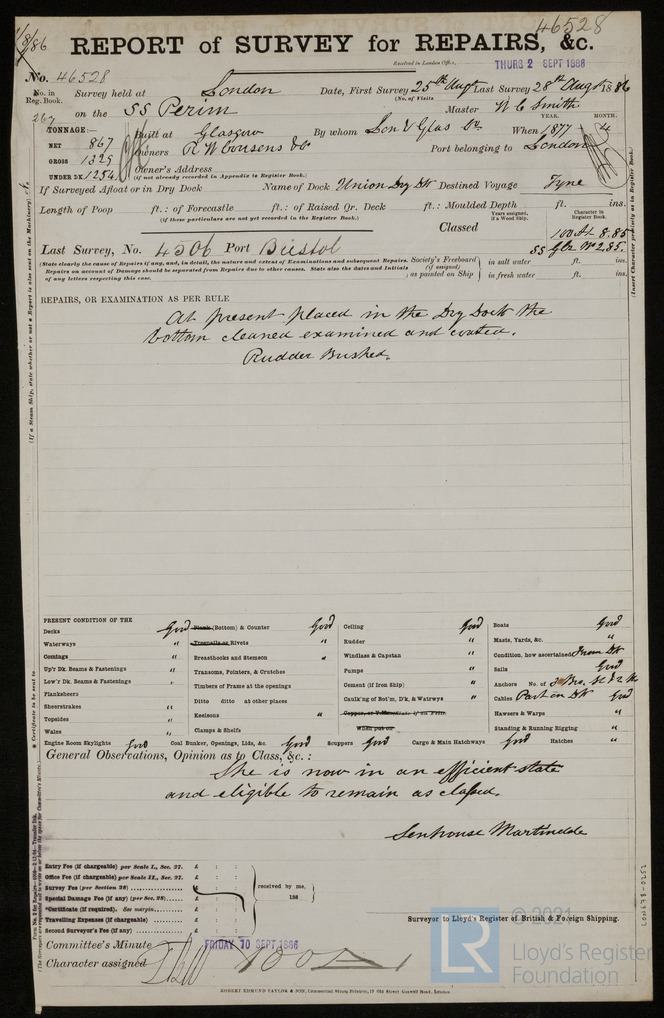 46528
REPORT of SURVEY for REPAIRS, &c.
Received in London Office, THURS 2 SEPT 1886
No. 46528
No. in Reg. Book. Survey held at London Date, First Survey 25th Augt Last Survey 28th Augt 1886
(No. of Visits
267 on the SS Perim Master W C Smith
TONNAGE:— Built at Glasgow By whom Lon & Glas Co When 1877 4
YEAR. MONTH.
NET 867 Owners R W Cousens & Co Port belonging to London
GROSS 1329
UNDER DK. 1254 Owner's Address
(if not already recorded in Appendix to Register Book.)
If Surveyed Afloat or in Dry Dock Name of Dock Union Dry Dk Destined Voyage Tyne
Length of Poop ft.: of Forecastle ft.: of Raised Qr. Deck ft.: Moulded Depth ft. ins.
(if these particulars are not yet recorded in the Register Book.)
Years assigned, if a Wood Ship. Character in Register Book.
Classed 100 A1 8.85
Last Survey, No. 4506 Port Bristol
(State clearly the cause of Repairs if any, and, in detail, the nature and extent of Examinations and subsequent Repairs.
Repairs on account of Damage should be separated from Repairs due to other causes. State also the dates and Initials
of any letters respecting this case.
Society's Freeboard (if assigned) as painted on Ship
in salt water ft. ins.
in fresh water ft. ins.
REPAIRS, OR EXAMINATION AS PER RULE
At present placed in the Dry Dock the
bottom cleaned examined and coated.
Rudder Bushed.
PRESENT CONDITION OF THE
Decks Good
Waterways "
Comings "
Up'r Dk. Beams & Fastenings "
Low'r Dk. Beams & Fastenings "
Planksheers
Sheerstrakes "
Topsides "
Wales "
Plank (Bottom) & Counter Good
Treenails or Rivets "
Breasthooks and Stemson
Transoms, Pointers, & Crutches
Timbers of Frame at the openings
Ditto ditto at other places
Keelsons "
Clamps & Shelfs
Ceiling Good
Rudder "
Windlass & Capstan "
Pumps "
Cement (if Iron Ship) "
Caulk'ng of Bot'm, D'k, & Watrwys "
When put on
Boats Good
Masts, Yards, &c. "
Condition, how ascertained From Dk
Sails Good
Anchors No. of
Cables Part on Dk Good
Hawsers & Warps "
Standing & Running Rigging "
Engine Room Skylights Good Coal Bunker, Openings, Lids, &c. Good Scuppers Good Cargo & Main Hatchways Good Hatches "
General Observations, Opinion as to Class, &c.:
She is now in an efficient state
and eligible to remain as classed.
Senhouse Martindale
Entry Fee (if chargeable) per Scale I., Sec. 27. £ : :
Office Fee (if chargeable) per Scale II., Sec. 27. £ : :
Survey Fee (per Section 28) £ : :
Special Damage Fee (if any) (per Sec. 28) £ : :
*Certificate (if required). See margin £ : :
Travelling Expenses (if chargeable) £ : :
Second Surveyor's Fee (if any) £ : :
received by me,
188
Surveyor to Lloyd's Register of British & Foreign Shipping.
Committee's Minute FRIDAY 10 SEPT 1886
Character assigned 100 A1
ROBERT EDMUND TAYLOR & SON, Commercial Steam Printers, 19 Old Street Goswell Road, London.
(If a Steam Ship, state whether or not a Report is also sent on the Machinery)
* Certificate to be sent to
(Insert Character precisely as in Register Book.)
LON678-0252
© 2021
LR
Lloyd's Register
Foundation